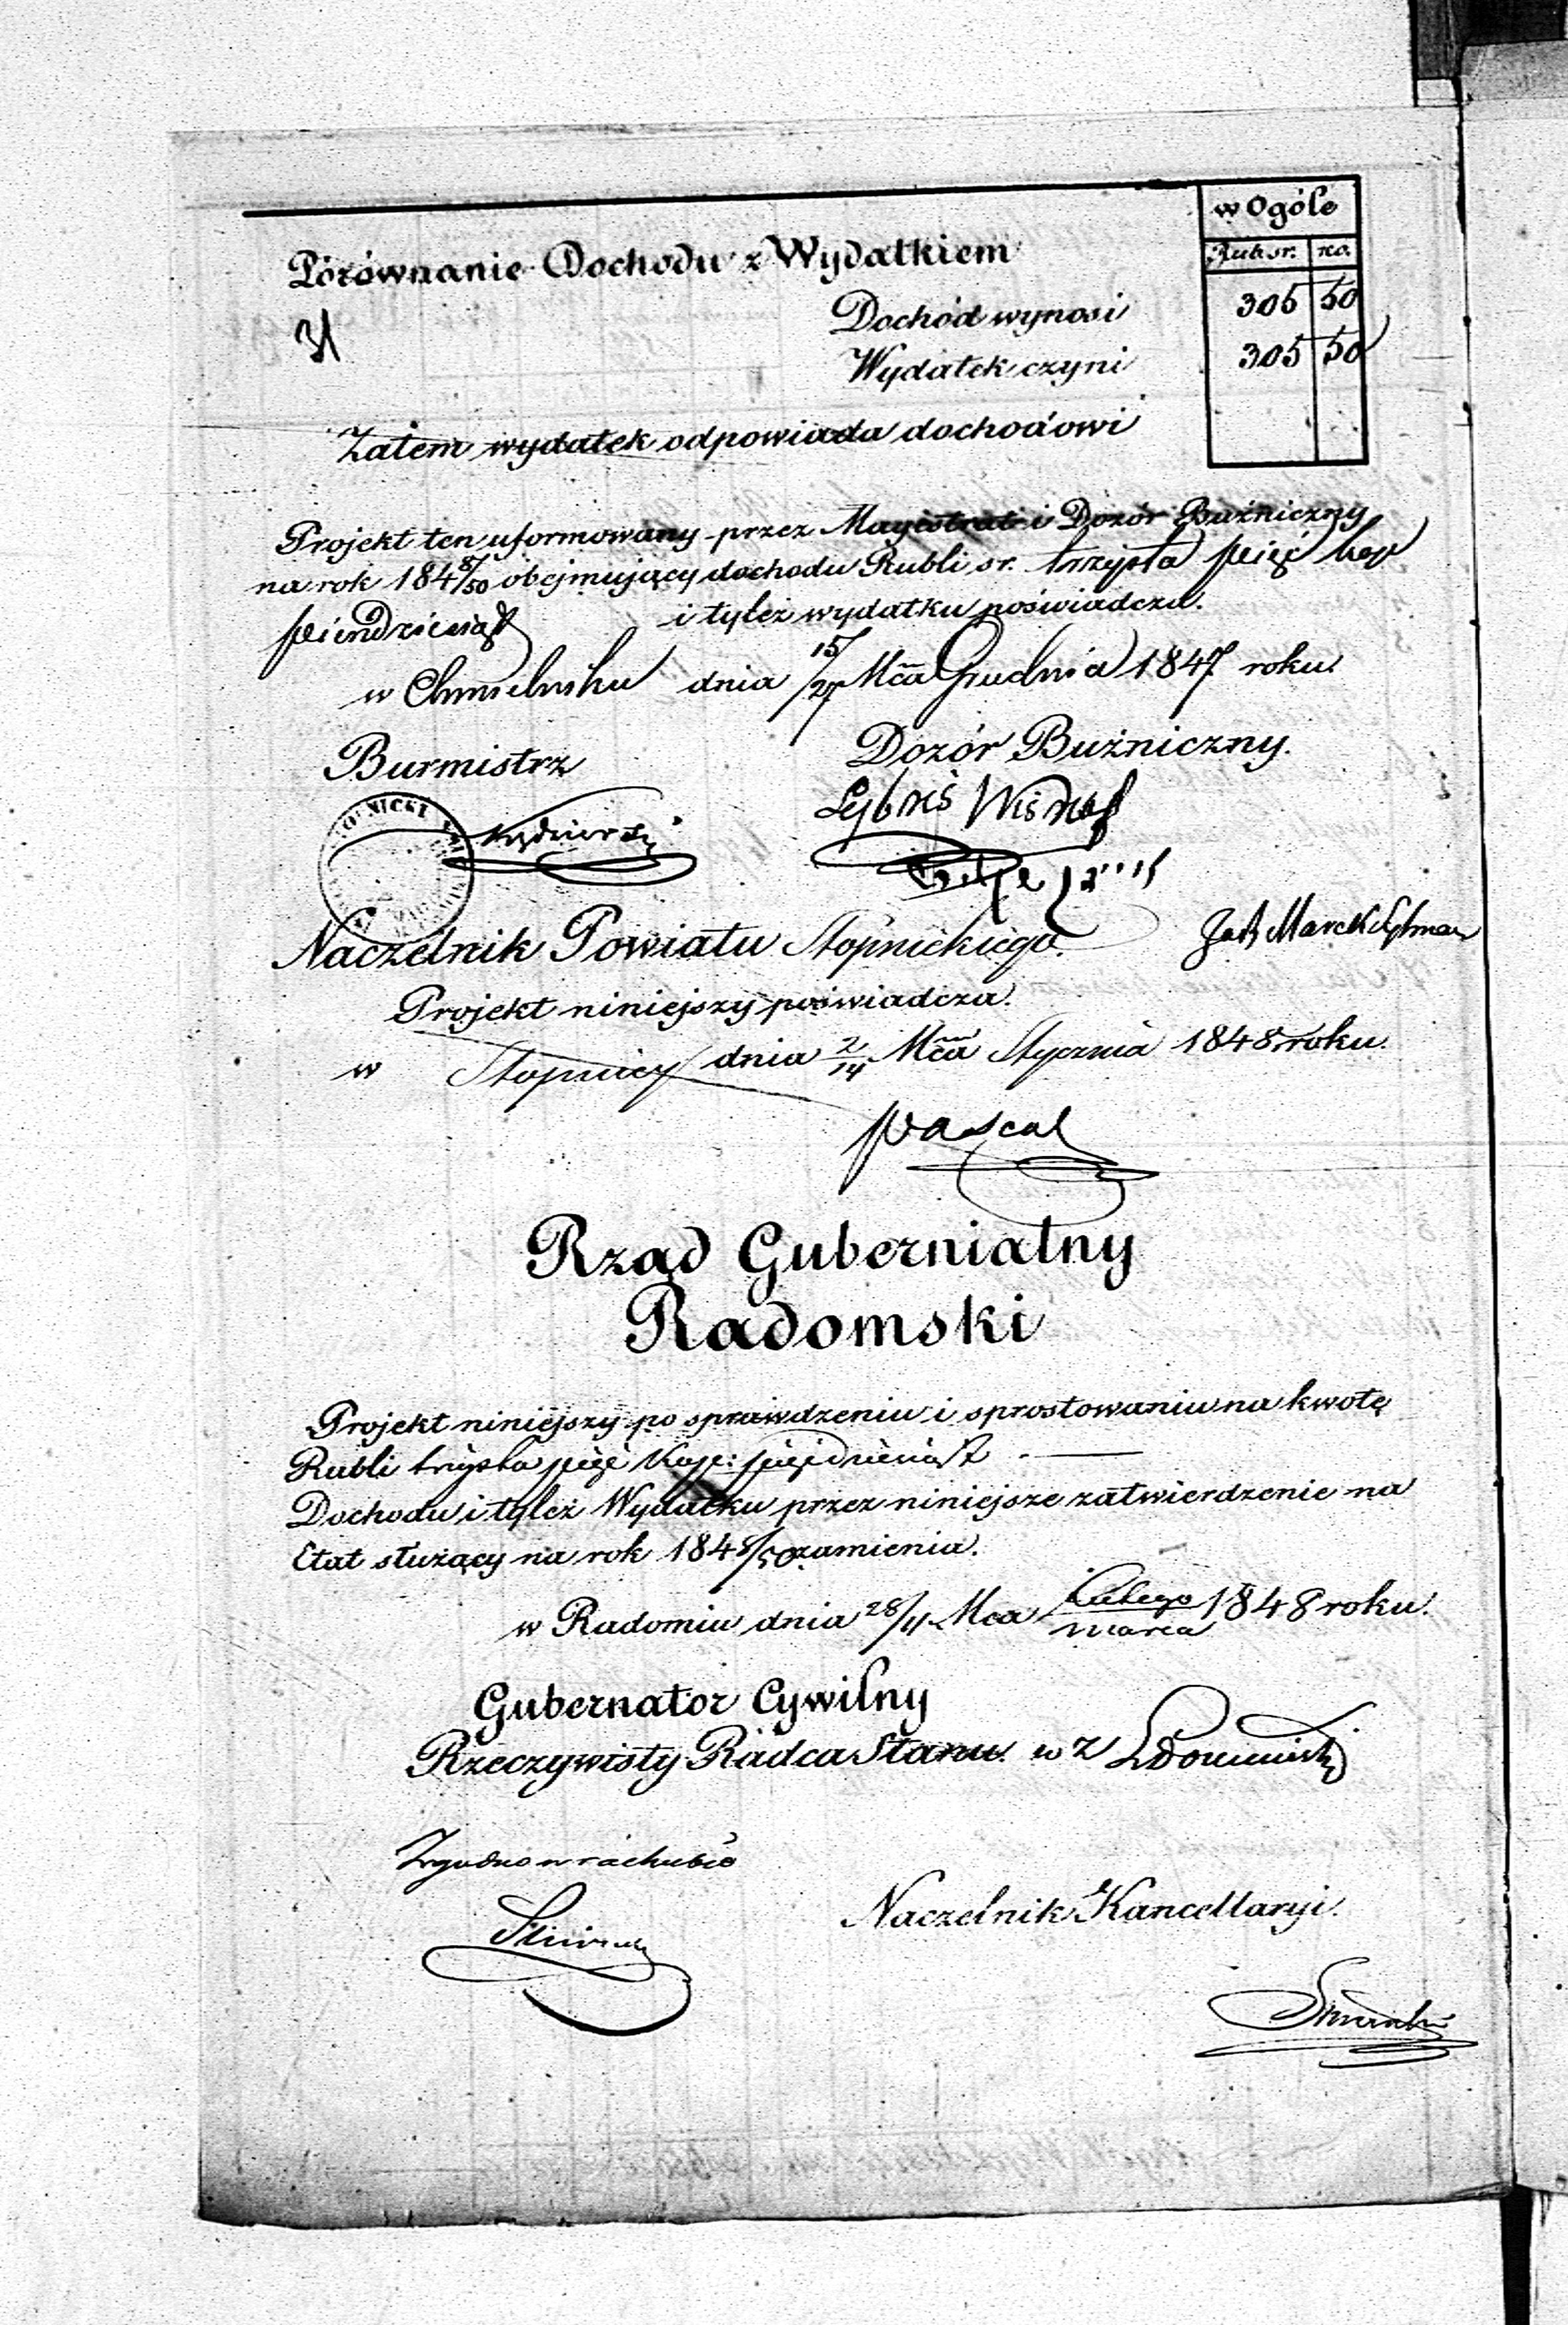 w Ogóle
Rub sr. ko.
Porównanie Dochodu z Wydatkiem
Dochód wynosi 305 50
Wydatek czyni 305 50
Zatem wydatek odpowiada dochodowi
Projekt ten uformowany przez Magistrat i Dozór Buźniczny
na rok 184 8/50 obejmujący dochodu Rubli sr. trzysta pięć kop
pięndziesiąt i tyleż wydatku poświadcza.
w Chmielniku dnia 15/27 Mca Grudnia 1847 roku.
Burmistrz Dozór Buźniczny.
Naczelnik Powiatu Stopnickiego.
Projekt niniejszy poświadcza.
w Stopnicy dnia 2/14 Mca Stycznia 1848 roku.
Pascal
Rząd Gubernialny
Radomski
Projekt niniejszy po sprawdzeniu i sprostowaniu na kwotę
Rubli trzysta pięć Kop: pięćdziesiąt
Dochodu i tyleż Wydatku przez niniejsze zatwierdzenie na
Etat służący na rok 184 8/50 zamienia.
w Radomiu dnia 28/11 Mca Lutego/Marca 1848 roku.
Gubernator Cywilny
Rzeczywisty Radca Stanu w z
Zgodno w rachubie
Naczelnik Kancellaryi.